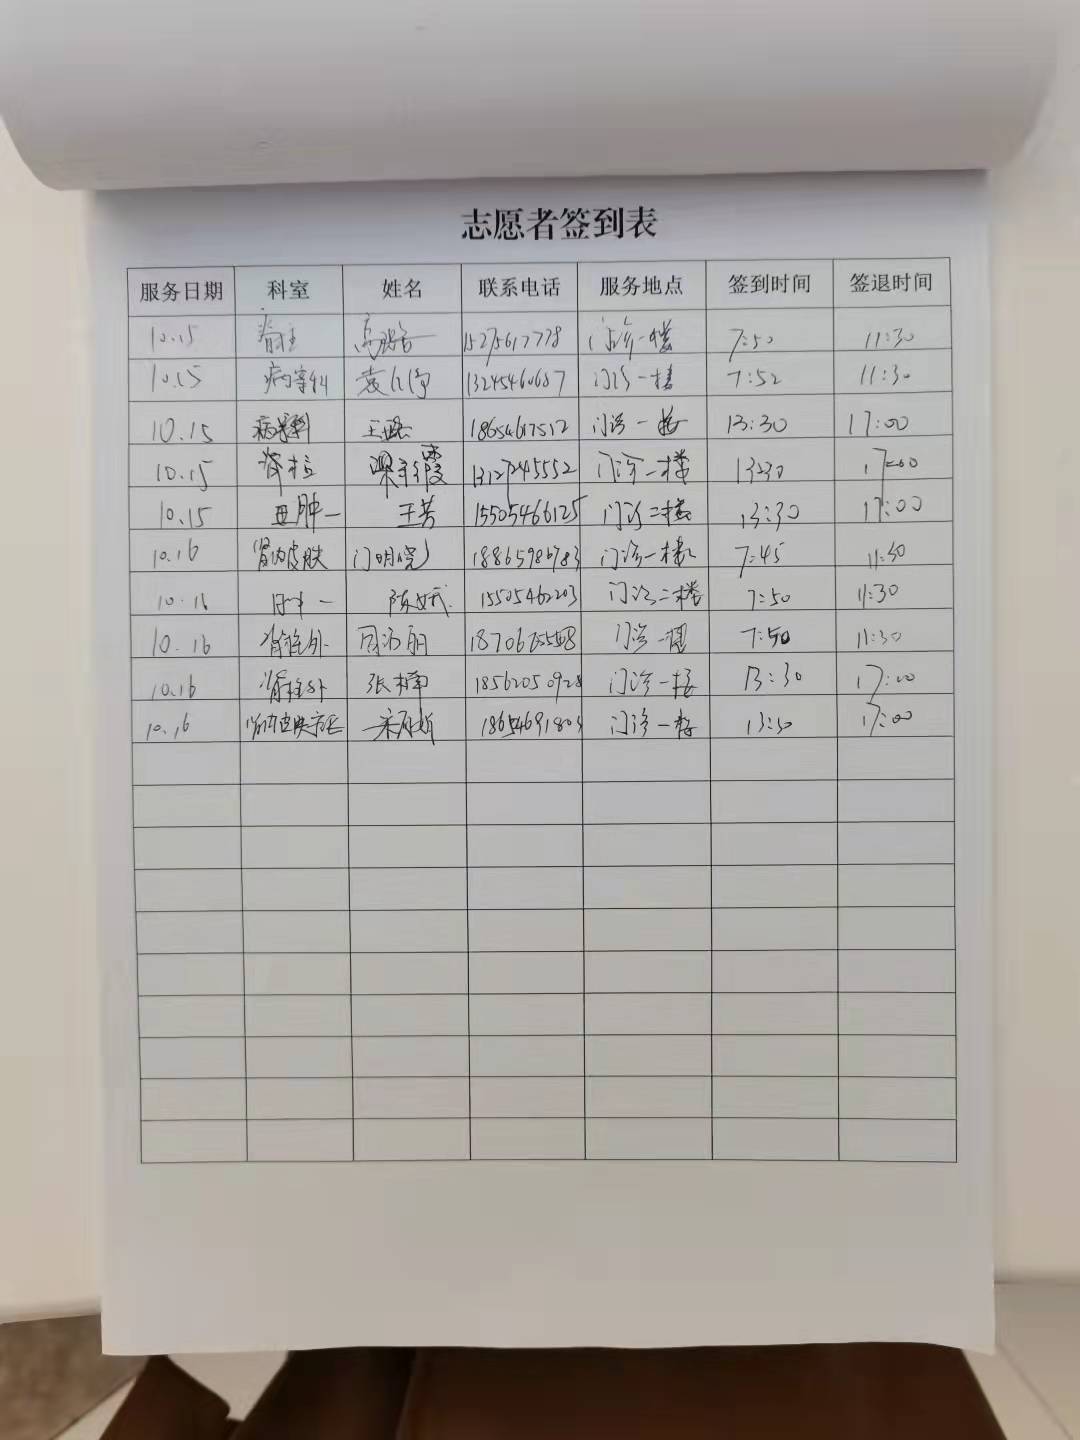 志愿者签到表
服务日期 科室 姓名 联系电话 服务地点 签到时间 签退时间
10.15 脊柱 15275617778 门诊一楼 7:50 11:30
10.15 病案科 13245460687 门诊一楼 7:52 11:30
10.15 病案科 王璐 18654617512 门诊一楼 13:30 17:00
10.15 脊柱 霞 13127245552 门诊一楼 13:30 17:00
10.15 王芳 15505466125 门诊二楼 13:30 17:00
10.16 肾内皮肤 门明 18865986783 门诊一楼 7:45 11:30
10.16 陈 15505462203 门诊二楼 7:50 11:30
10.16 脊柱外 周 丽 门诊一楼 7:50 11:30
10.16 脊柱外 张楠 18562050928 门诊一楼 13:30 17:00
10.16 肾内皮肤 18654691803 门诊一楼 13:30 17:00